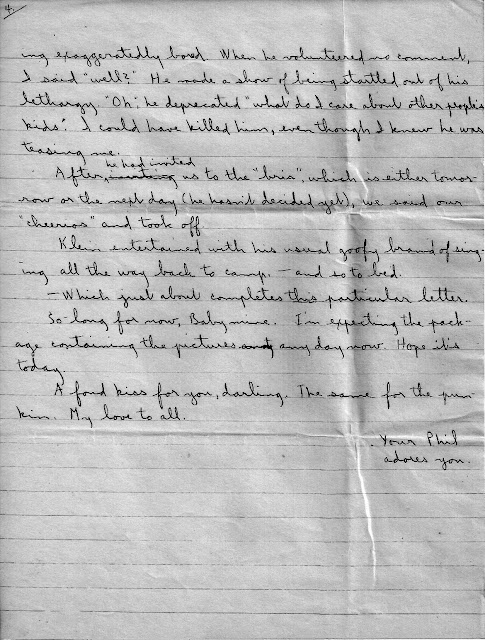 4.
ing exaggeratedly bored. When he volunteered no comment,
I said "well?" He made a show of being startled out of his
lethargy. "Oh", he deprecated "what do I care about other people's
kids". I could have killed him, even though I knew he was
teasing me.
he had invited
After, inviting us to the "bris", which is either tomor-
row or the next day (he hasn't decided yet), we said our
"cheerios" and took off
Klein entertained with his usual goofy brand of sing-
ing all the way back to camp. – and so to bed.
– Which just about completes this particular letter.
So-long for now, Baby mine. I'm expecting the pack-
age containing the pictures any day now. Hope it's
today.
A fond kiss for you, darling. The same for the pun-
kin. My love to all.
Your Phil
adores you.